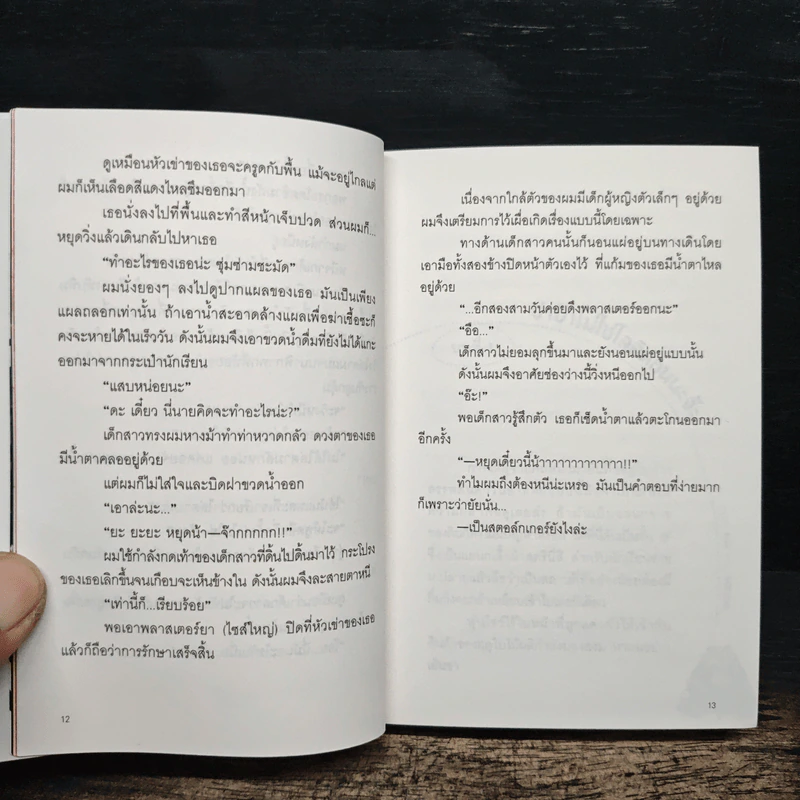 ดูเหมือนหัวเข่าของเธอจะครูดกับพื้น แม้จะอยู่ไกลแต่
ผมก็เห็นเลือดสีแดงไหลซึมออกมา
เธอนั่งลงไปที่พื้นและทำสีหน้าเจ็บปวด ส่วนผมก็...
หยุดวิ่งแล้วเดินกลับไปหาเธอ
“ทำอะไรของเธอน่ะ ซุ่มซ่ามชะมัด”
ผมนั่งยองๆ ลงไปดูปากแผลของเธอ มันเป็นเพียง
แผลถลอกเท่านั้น ถ้าเอาน้ำสะอาดล้างแผลเพื่อฆ่าเชื้อซะก็
คงจะหายได้ในเร็ววัน ดังนั้นผมจึงเอาขวดน้ำดื่มที่ยังไม่ได้แกะ
ออกมาจากกระเป๋านักเรียน
“แสบหน่อยนะ”
“ดะ เดี๋ยว นี่นายคิดจะทำอะไรน่ะ?”
เด็กสาวทรงผมหางม้าทำท่าหวาดกลัว ดวงตาของเธอ
มีน้ำตาคลออยู่ด้วย
แต่ผมก็ไม่ใส่ใจและบิดฝาขวดน้ำออก
“เอาล่ะนะ...”
“ยะ ยะยะ หยุดน้า—จ๊ากกกกก!!”
ผมใช้กำลังกดเท้าของเด็กสาวที่ดิ้นไปดิ้นมาไว้ กระโปรง
ของเธอเลิกขึ้นจนเกือบจะเห็นข้างใน ดังนั้นผมจึงละสายตาหนี
“เท่านี้ก็...เรียบร้อย”
พอเอาพลาสเตอร์ยา (ไซส์ใหญ่) ปิดที่หัวเข่าของเธอ
แล้วก็ถือว่าการรักษาเสร็จสิ้น
12
เนื่องจากใกล้ตัวของผมมีเด็กผู้หญิงตัวเล็กๆ อยู่ด้วย
ผมจึงเตรียมการไว้เผื่อเกิดเรื่องแบบนี้โดยเฉพาะ
ทางด้านเด็กสาวคนนั้นก็นอนแผ่อยู่บนทางเดินโดย
เอามือทั้งสองข้างปิดหน้าตัวเองไว้ ที่แก้มของเธอมีน้ำตาไหล
อยู่ด้วย
“...อีกสองสามวันค่อยดึงพลาสเตอร์ออกนะ”
“อือ...”
เด็กสาวไม่ยอมลุกขึ้นมาและยังนอนแผ่อยู่แบบนั้น
ดังนั้นผมจึงอาศัยช่องว่างนี้วิ่งหนีออกไป
“อ๊ะ!”
พอเด็กสาวรู้สึกตัว เธอก็เช็ดน้ำตาแล้วตะโกนออกมา
อีกครั้ง
“—หยุดเดี๋ยวนี้น้าาาาาาาาาาาาา!!”
ทำไมผมถึงต้องหนีน่ะเหรอ มันเป็นคำตอบที่ง่ายมาก
ก็เพราะว่ายัยนั่น...
—เป็นสตอล์กเกอร์ยังไงล่ะ
13